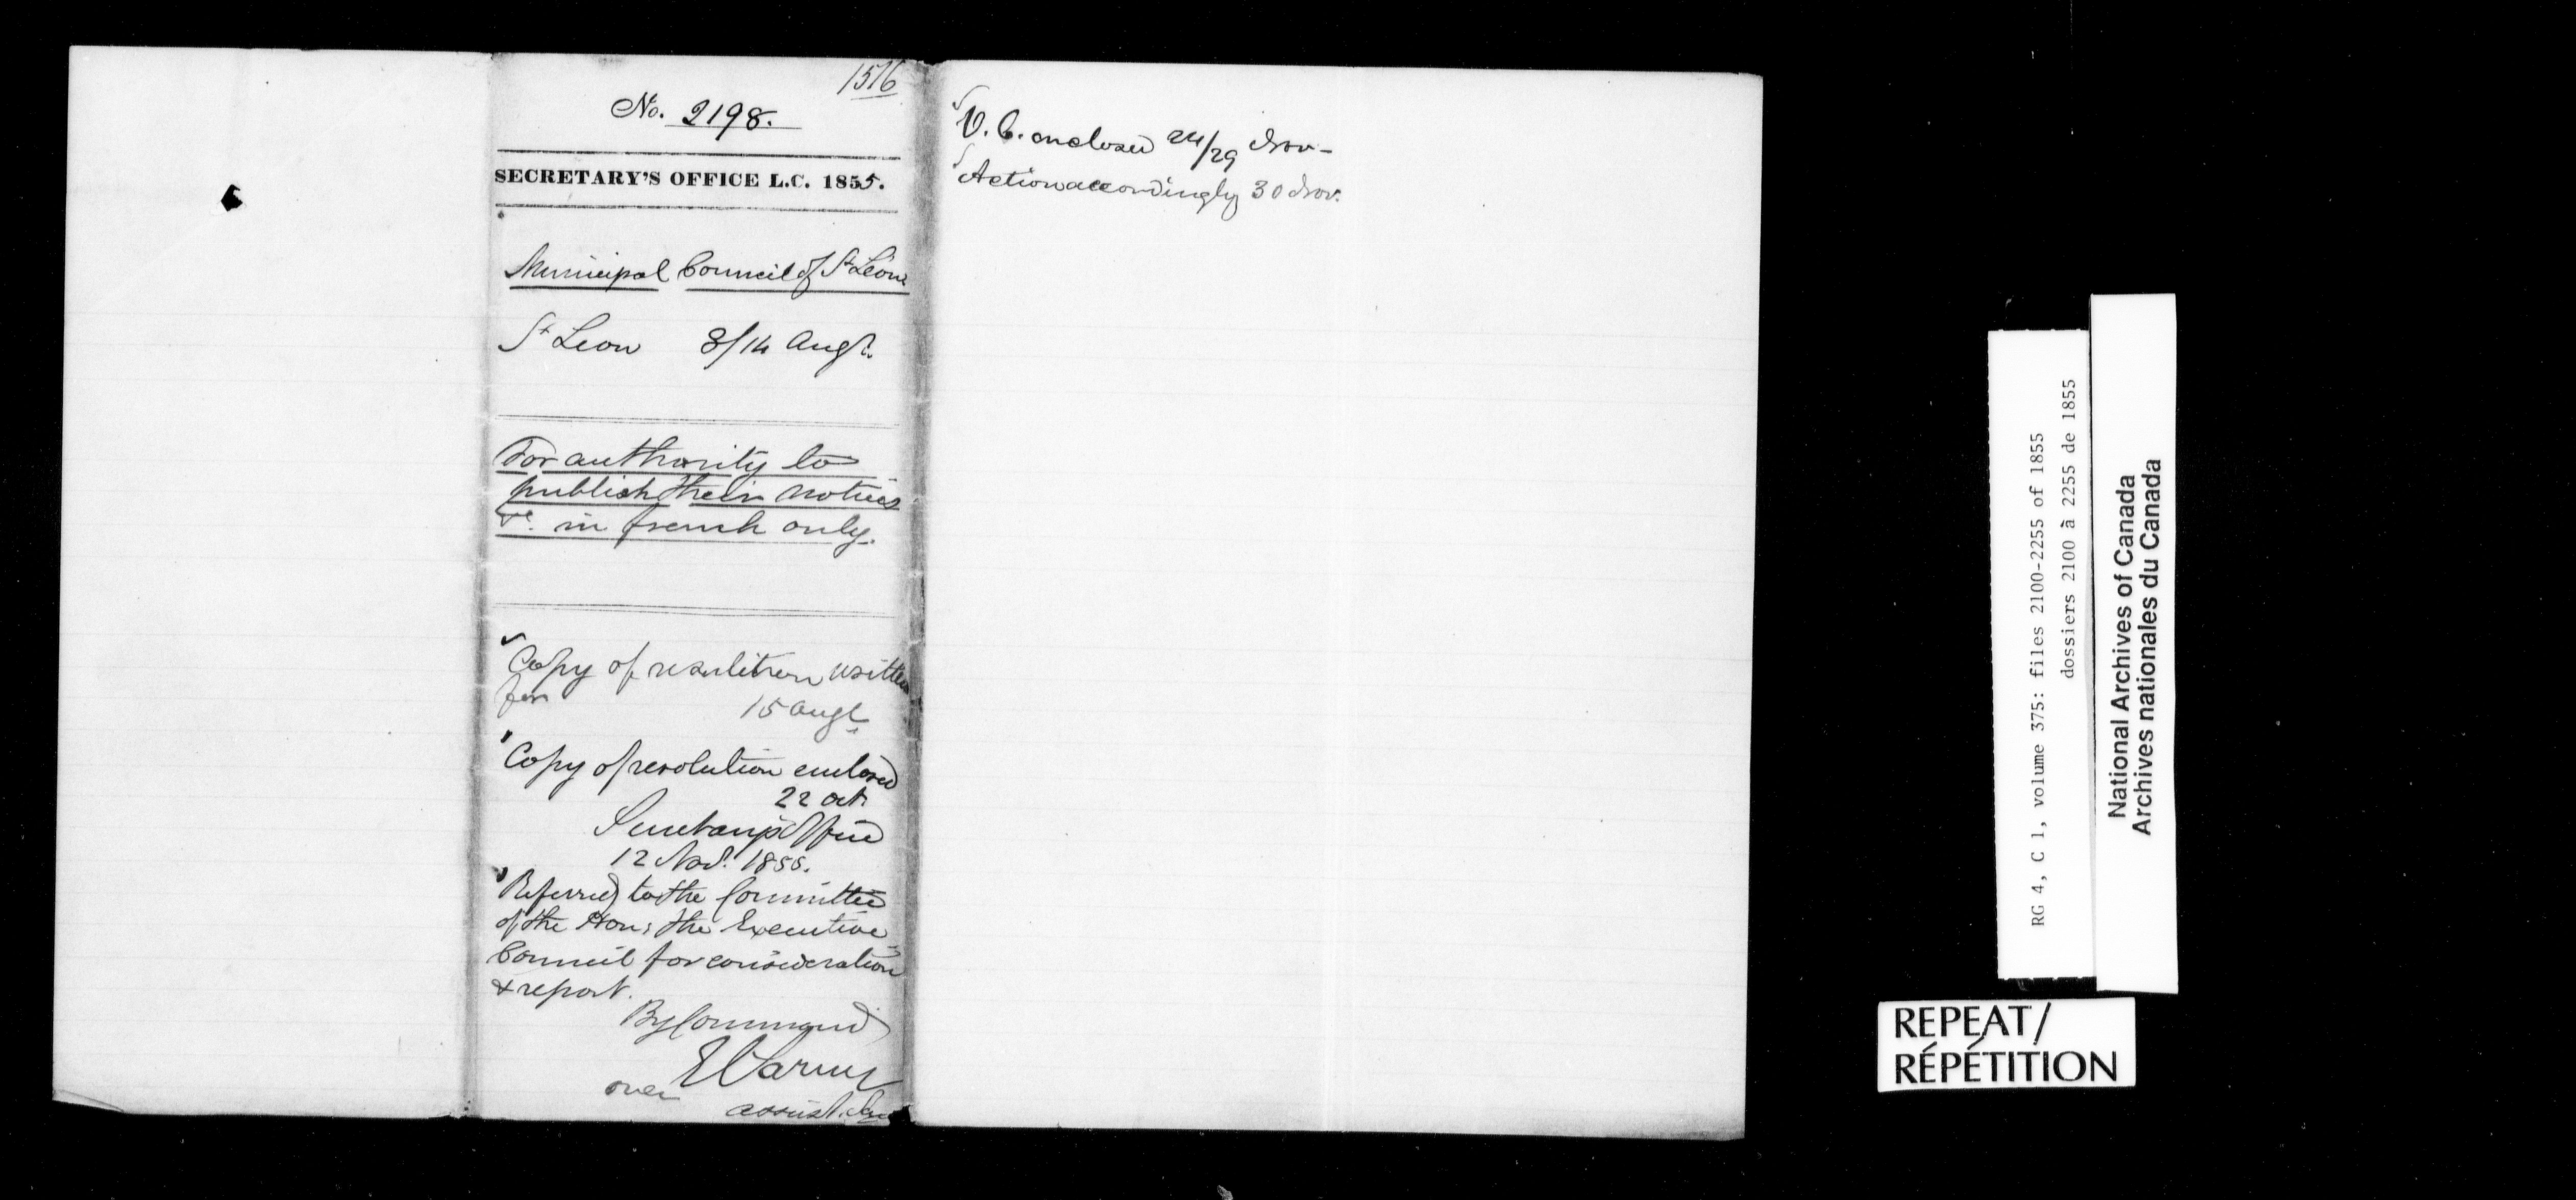 1516
No. 2198.
SECRETARY'S OFFICE L.C. 1855.
Municipal Council of St Léon
St Leon 8/14 Augt.
For authority to
publish their notices
&c. in french only.
Copy of resolution written
for
15 Augt
Copy of resolution enclosed
22 Oct.
Secretary's Office
12 Nov. 1855.
Referred to the Committee
of the Hon: the Executive
Council for consideration
& report.
By Command
E Parent
over
assist. Sec
O. C. enclosed 24/29 Nov-
Action accordingly 30 Nov.
RG 4, C 1, volume 375: files 2100-2255 of 1855
dossiers 2100 à 2255 de 1855
National Archives of Canada
Archives nationales du Canada
REPEAT/
RÉPÉTITION